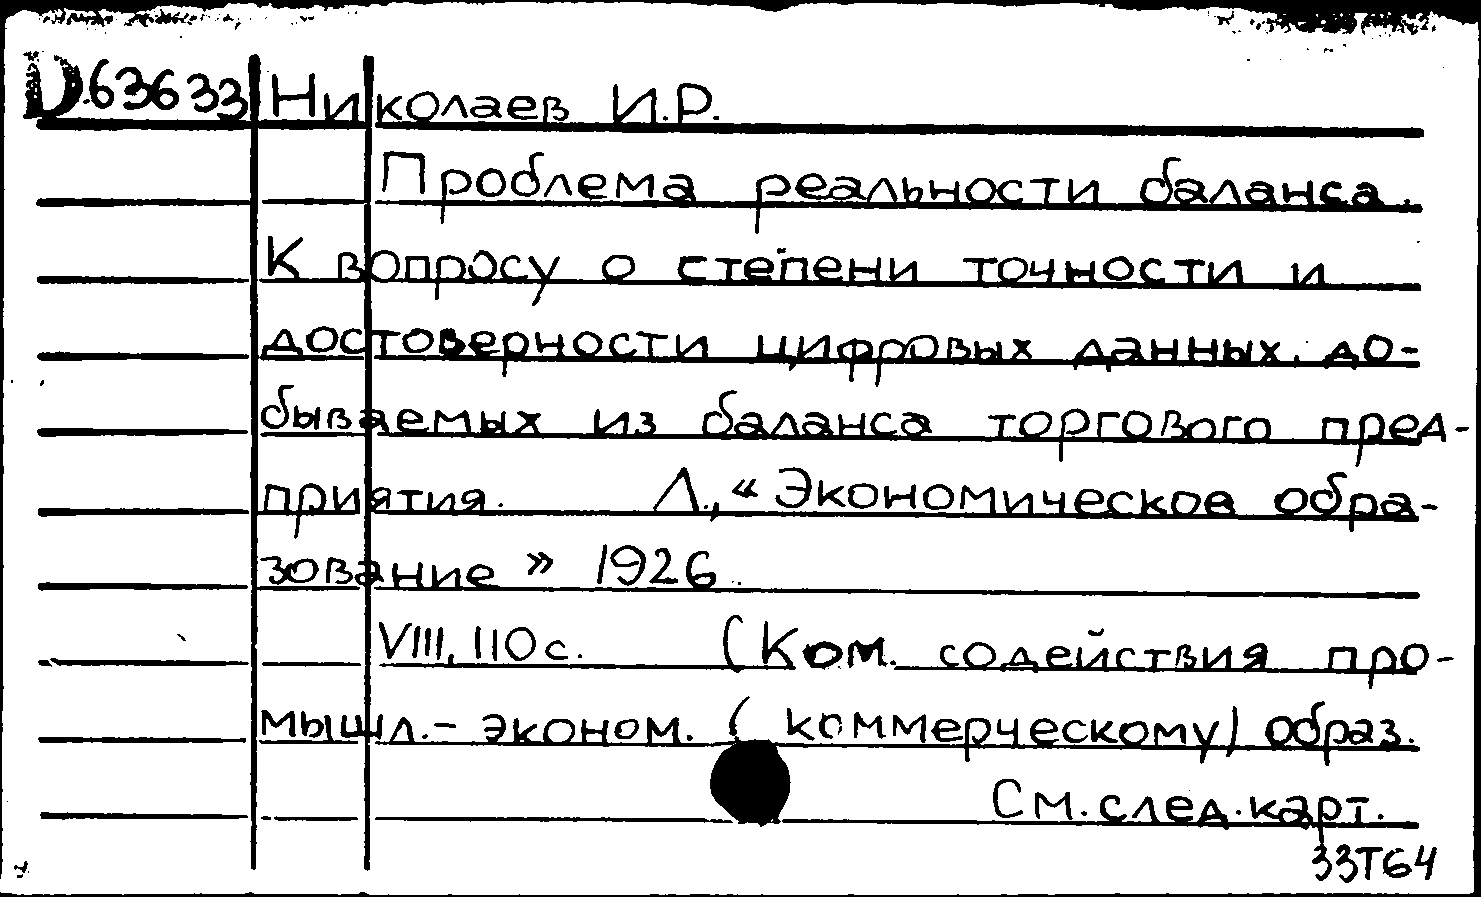 D63633 Николаев И.Р.
Проблема реальности баланса.
К вопросу о степени точности и
достоверности цифровых данных, до-
бываемых из баланса торгового пред-
приятия. Л., «Экономическое обра-
зование» 1926.
VIII, 110 с. (Ком. содействия про-
мышл.-эконом. (коммерческому) образ.
См. след. карт.
33Т64